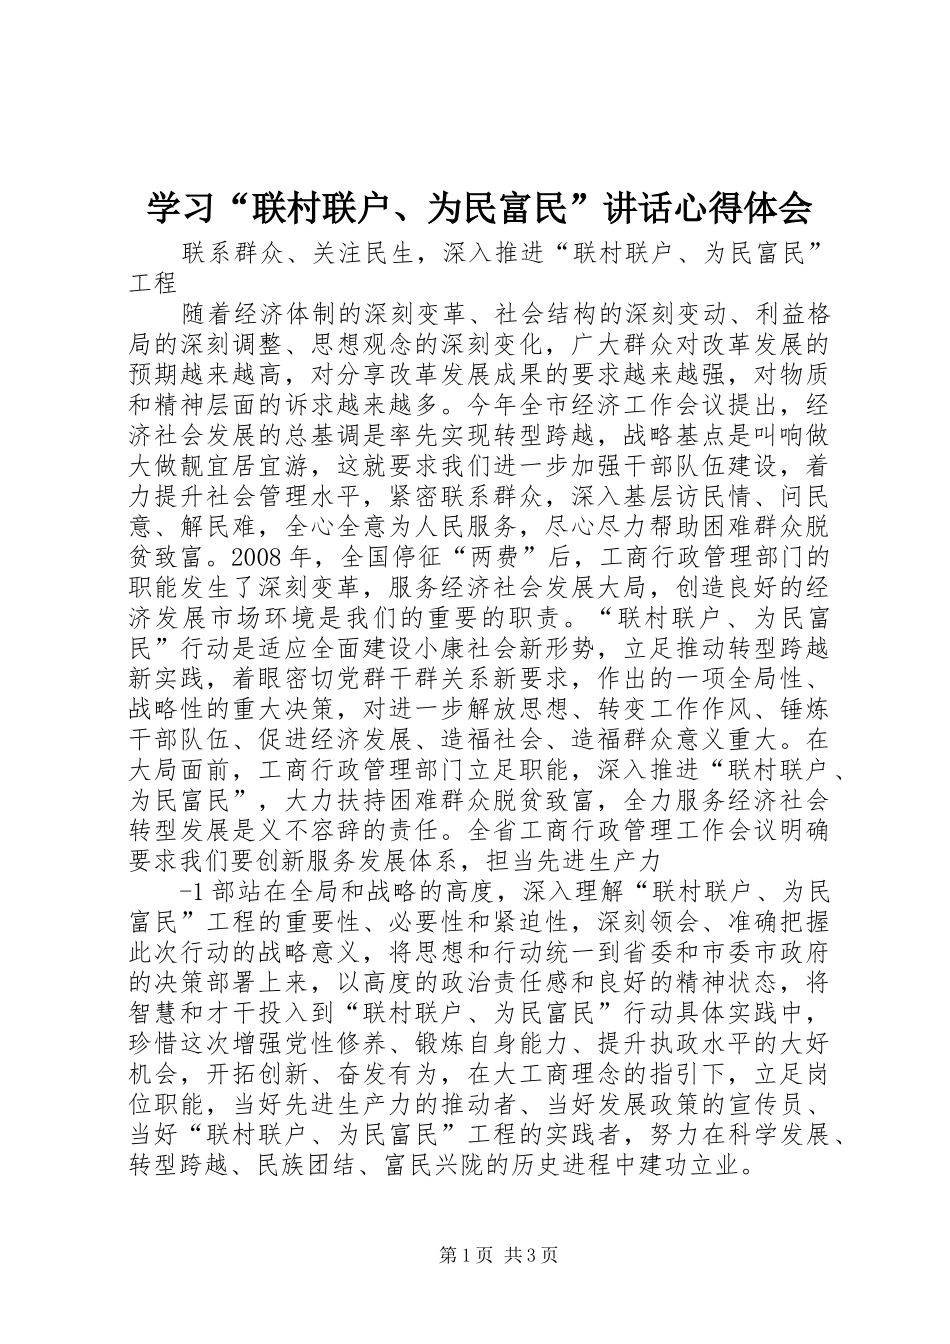 学习“联村联户、为民富民”讲话心得体会
联系群众、关注民生，深入推进“联村联户、为民富民”
工程
随着经济体制的深刻变革、社会结构的深刻变动、利益格
局的深刻调整、思想观念的深刻变化，广大群众对改革发展的
预期越来越高，对分享改革发展成果的要求越来越强，对物质
和精神层面的诉求越来越多。今年全市经济工作会议提出，经
济社会发展的总基调是率先实现转型跨越，战略基点是叫响做
大做靓宜居宜游，这就要求我们进一步加强干部队伍建设，着
力提升社会管理水平，紧密联系群众，深入基层访民情、问民
意、解民难，全心全意为人民服务，尽心尽力帮助困难群众脱
贫致富。2008 年，全国停征“两费”后，工商行政管理部门的
职能发生了深刻变革，服务经济社会发展大局，创造良好的经
济发展市场环境是我们的重要的职责。“联村联户、为民富
民”行动是适应全面建设小康社会新形势，立足推动转型跨越
新实践，着眼密切党群干群关系新要求，作出的一项全局性、
战略性的重大决策，对进一步解放思想、转变工作作风、锤炼
干部队伍、促进经济发展、造福社会、造福群众意义重大。在
大局面前，工商行政管理部门立足职能，深入推进“联村联户、
为民富民”，大力扶持困难群众脱贫致富，全力服务经济社会
转型发展是义不容辞的责任。全省工商行政管理工作会议明确
要求我们要创新服务发展体系，担当先进生产力
-1 部站在全局和战略的高度，深入理解“联村联户、为民
富民”工程的重要性、必要性和紧迫性，深刻领会、准确把握
此次行动的战略意义，将思想和行动统一到省委和市委市政府
的决策部署上来，以高度的政治责任感和良好的精神状态，将
智慧和才干投入到“联村联户、为民富民”行动具体实践中，
珍惜这次增强党性修养、锻炼自身能力、提升执政水平的大好
机会，开拓创新、奋发有为，在大工商理念的指引下，立足岗
位职能，当好先进生产力的推动者、当好发展政策的宣传员、
当好“联村联户、为民富民”工程的实践者，努力在科学发展、
转型跨越、民族团结、富民兴陇的历史进程中建功立业。
第 1 页 共 3 页